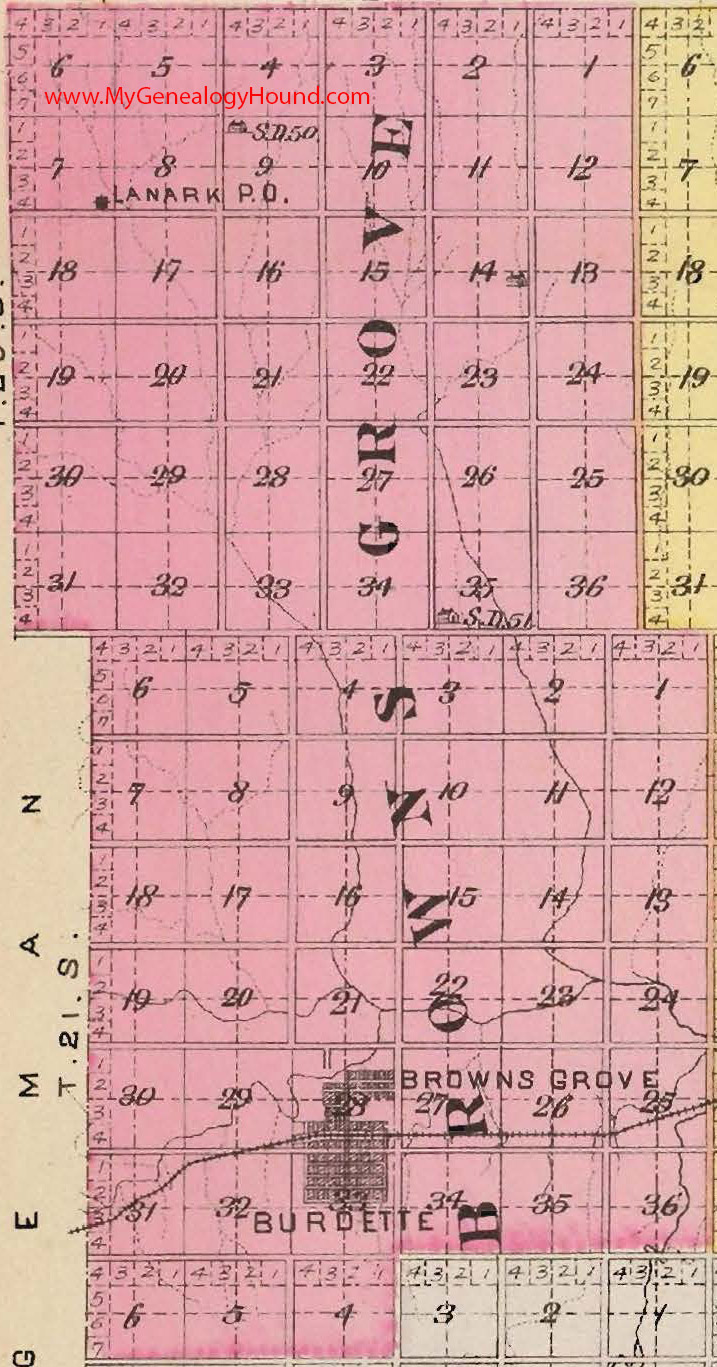 4 3 2 1 4 3 2 1 4 3 2 1 4 3 2 1 4 3 2 1 4 3 2 1 4 3 2
5
6 5 4 3 2 1 6
6
7 www.MyGenealogyHound.com 7
1 S.D.50. 1
2 2
7 8 9 10 11 12 7
3 3
4 LANARK P.O. 4
1 1
2 2
18 17 16 15 14 13 18
3 3
4 4
1 1
2 2
19 20 21 22 23 24 19
3 3
4 4
1 1
2 2
30 29 28 27 26 25 30
3 3
4 4
1 1
2 2
31 32 33 34 35 36 31
3 3
4 S.D.51. 4
4 3 2 1 4 3 2 1 4 3 2 1 4 3 2 1 4 3 2 1 4 3 2 1
5
6 5 4 3 2 1
6
7
1
2
7 8 9 10 11 12
3
4
1
2
18 17 16 15 14 13
3
4
1
2
19 20 21 22 23 24
3
4
1
2 BROWNS GROVE
30 29 28 27 26 25
3
4
1
2
31 32 33 34 35 36
3
4 BURDETTE
4 3 2 1 4 3 2 1 4 3 2 1 4 3 2 1 4 3 2 1 4 3 2 1
5
6 5 4 3 2 1
6
7
BROWNS GROVE
T.21.S.
G E M A N